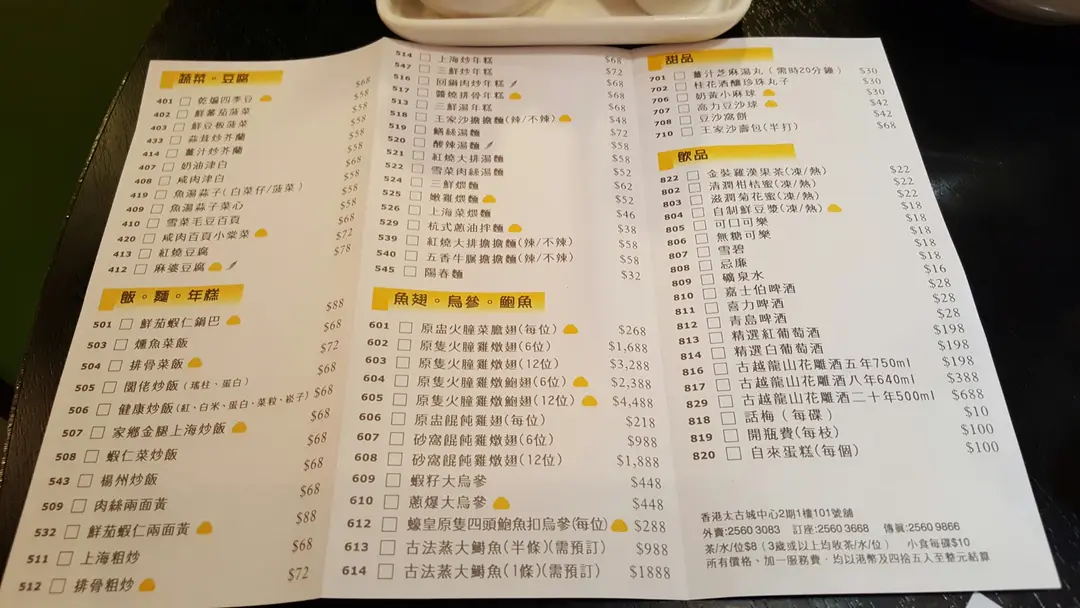 蔬菜。豆腐
401 乾煸四季豆 $68
402 鮮蕃茄菠菜 $58
403 鮮豆板菠菜 $58
433 蒜茸炒芥蘭 $58
414 薑汁炒芥蘭 $58
407 奶油津白 $58
408 咸肉津白 $68
419 魚湯蒜子(白菜仔/菠菜) $58
409 魚湯蒜子菜心 $58
410 雪菜毛豆百頁 $58
420 咸肉百頁小棠菜 $68
413 紅燒豆腐 $72
412 麻婆豆腐 $78
飯。麵。年糕
501 鮮茄蝦仁鍋巴 $88
503 燻魚菜飯 $68
504 排骨菜飯 $72
505 闊佬炒飯(瑤柱、蛋白) $68
506 健康炒飯(紅、白米、蛋白、菜粒、崧子) $68
507 家鄉金腿上海炒飯 $68
508 蝦仁菜炒飯 $68
543 楊州炒飯 $68
509 肉絲兩面黃 $68
532 鮮茄蝦仁兩面黃 $88
511 上海粗炒 $68
512 排骨粗炒 $72
514 上海炒年糕 $68
547 三鮮炒年糕 $72
516 回鍋肉炒年糕 $68
517 醬燒排骨年糕 $68
513 三鮮湯年糕 $68
518 王家沙擔擔麵(辣/不辣) $48
519 鱔絲湯麵 $72
520 酸辣湯麵 $58
521 紅燒大排湯麵 $58
522 雪菜肉絲湯麵 $52
524 三鮮煨麵 $62
525 嫩雞煨麵 $52
526 上海菜煨麵 $46
529 杭式蔥油拌麵 $38
539 紅燒大排擔擔麵(辣/不辣) $58
540 五香牛腒擔擔麵(辣/不辣) $58
545 陽春麵 $32
魚翅。烏參。鮑魚
601 原盅火瞳菜膽翅(每位) $268
602 原隻火瞳雞燉翅(6位) $1,688
603 原隻火瞳雞燉翅(12位) $3,288
604 原隻火瞳雞燉鮑翅(6位) $2,388
605 原隻火瞳雞燉鮑翅(12位) $4,488
606 原盅餛飩雞燉翅(每位) $218
607 砂窩餛飩雞燉翅(6位) $988
608 砂窩餛飩雞燉翅(12位) $1,888
609 蝦籽大烏參 $448
610 蔥爆大烏參 $448
612 蠔皇原隻四頭鮑魚扣烏參(每位) $288
613 古法蒸大鰣魚(半條)(需預訂) $988
614 古法蒸大鰣魚(1條)(需預訂) $1888
甜品
701 薑汁芝麻湯丸(需時20分鐘) $30
702 桂花酒釀珍珠丸子 $30
706 奶黃小麻球 $30
707 高力豆沙球 $42
708 豆沙窩餅 $42
710 王家沙壽包(半打) $68
飲品
822 金裝羅漢果茶(凍/熱) $22
802 清潤柑桔蜜(凍/熱) $22
803 滋潤菊花蜜(凍/熱) $22
804 自制鮮豆漿(凍/熱) $18
805 可口可樂 $18
806 無糖可樂 $18
807 雪碧 $18
808 忌廉 $18
809 礦泉水 $16
810 嘉士伯啤酒 $28
811 喜力啤酒 $28
812 青島啤酒 $28
813 精選紅葡萄酒 $198
814 精選白葡萄酒 $198
816 古越龍山花雕酒五年750ml $198
817 古越龍山花雕酒八年640ml $388
829 古越龍山花雕酒二十年500ml $688
818 話梅(每碟) $10
819 開瓶費(每枝) $100
820 自來蛋糕(每個) $100
香港太古城中心2期1樓101號舖
外賣:2560 3083 訂座:2560 3668 傳眞:2560 9866
茶/水/位$8(3歲或以上均收茶/水/位) 小食每碟$10
所有價格、加一服務費，均以港幣及四拾五入至整元結算